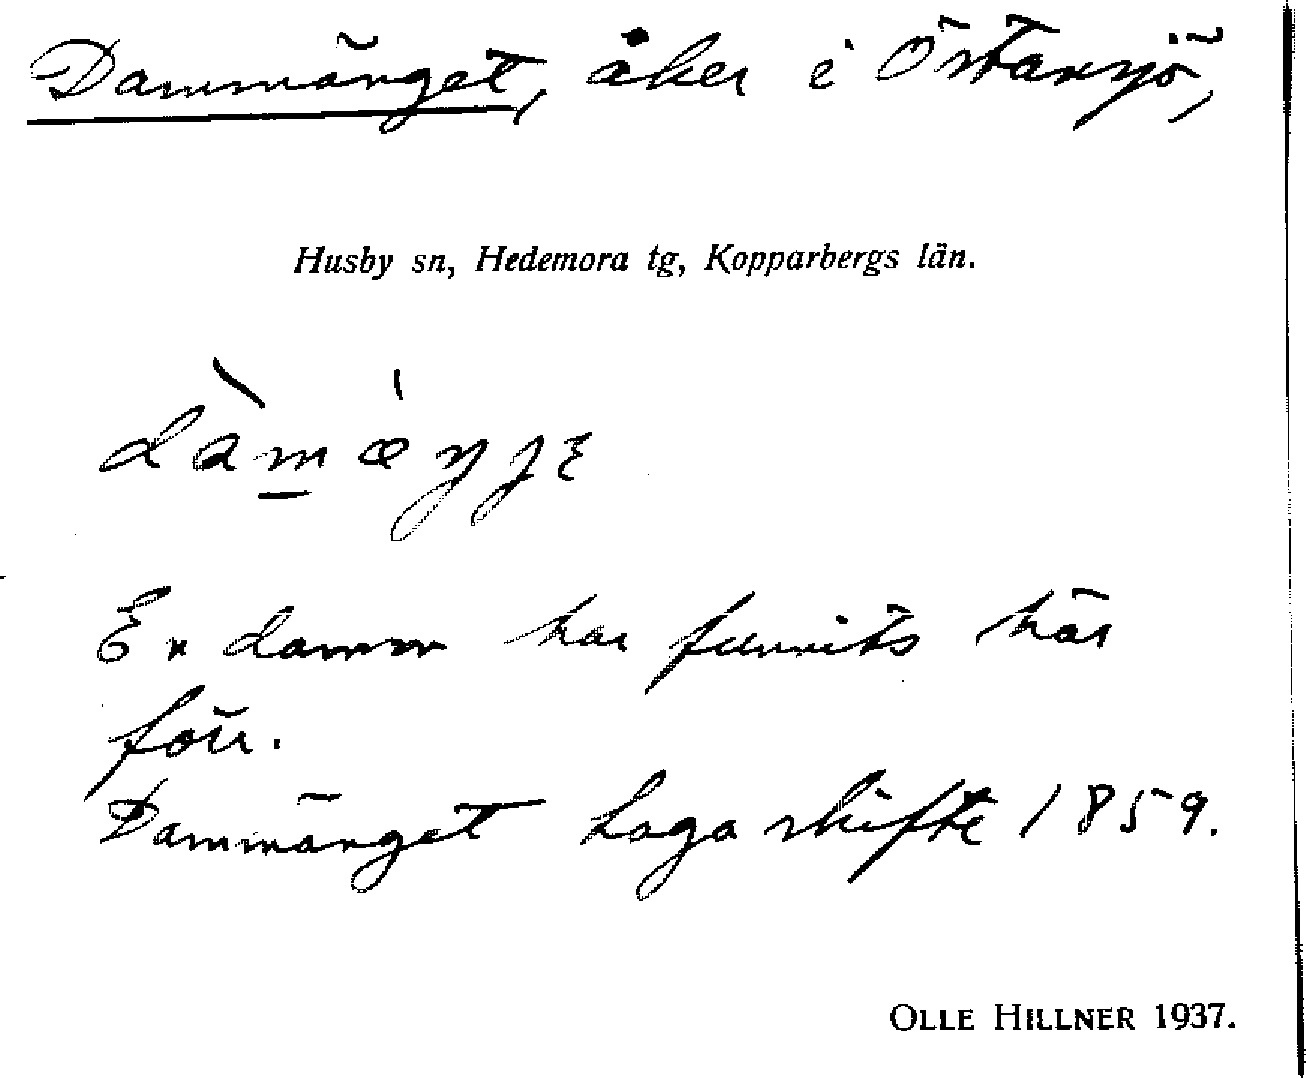 Dammänget, åker i Östansjö,
Husby sn, Hedemora tg, Kopparbergs län.
En damm har funnits här
förr.
Dammänget Laga skifte 1859.
OLLE HILLNER 1937.